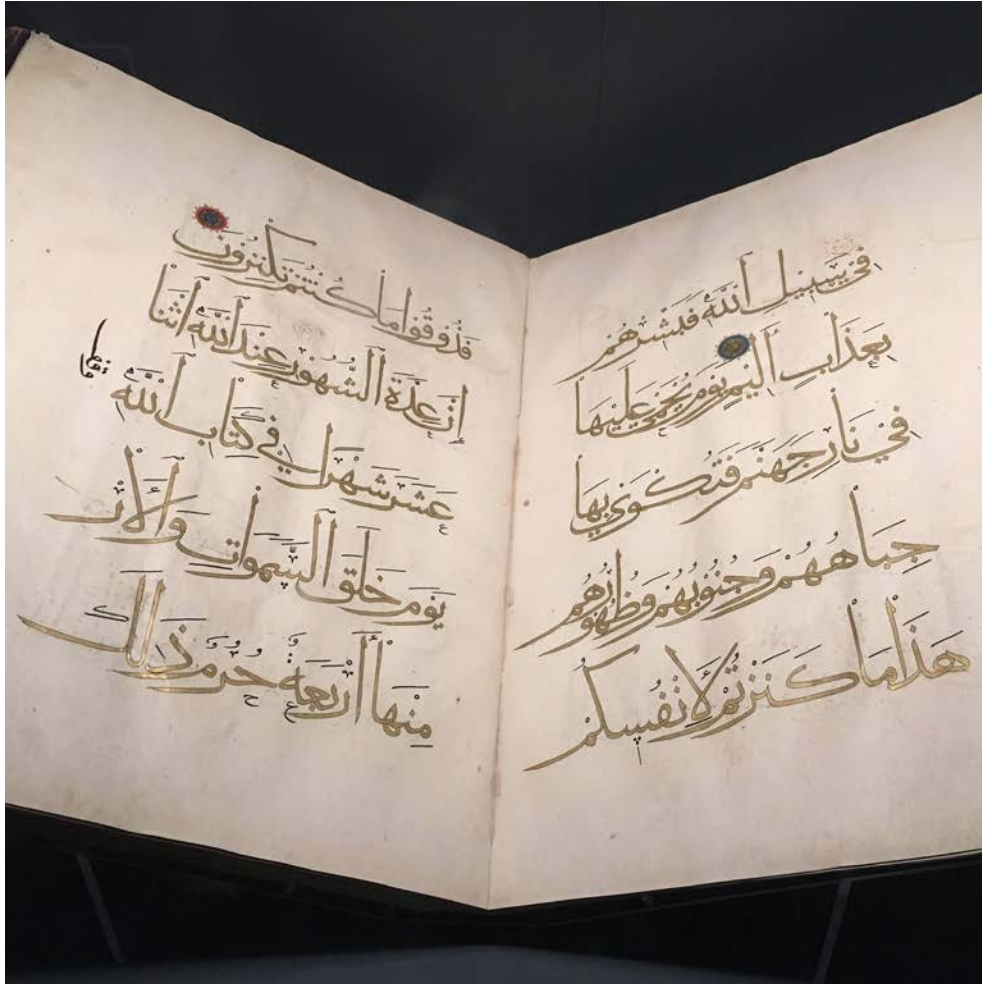 في سبيل الله فبشرهم
بعذاب أليم يوم يحمى عليها
في نار جهنم فتكوى بها
جباههم وجنوبهم وظهورهم
هذا ما كنزتم لأنفسكم
فذوقوا ما كنتم تكنزون
إن عدة الشهور عند الله اثنا
عشر شهرا في كتاب الله
يوم خلق السموات والأر
منها أربعة حرم ذلك